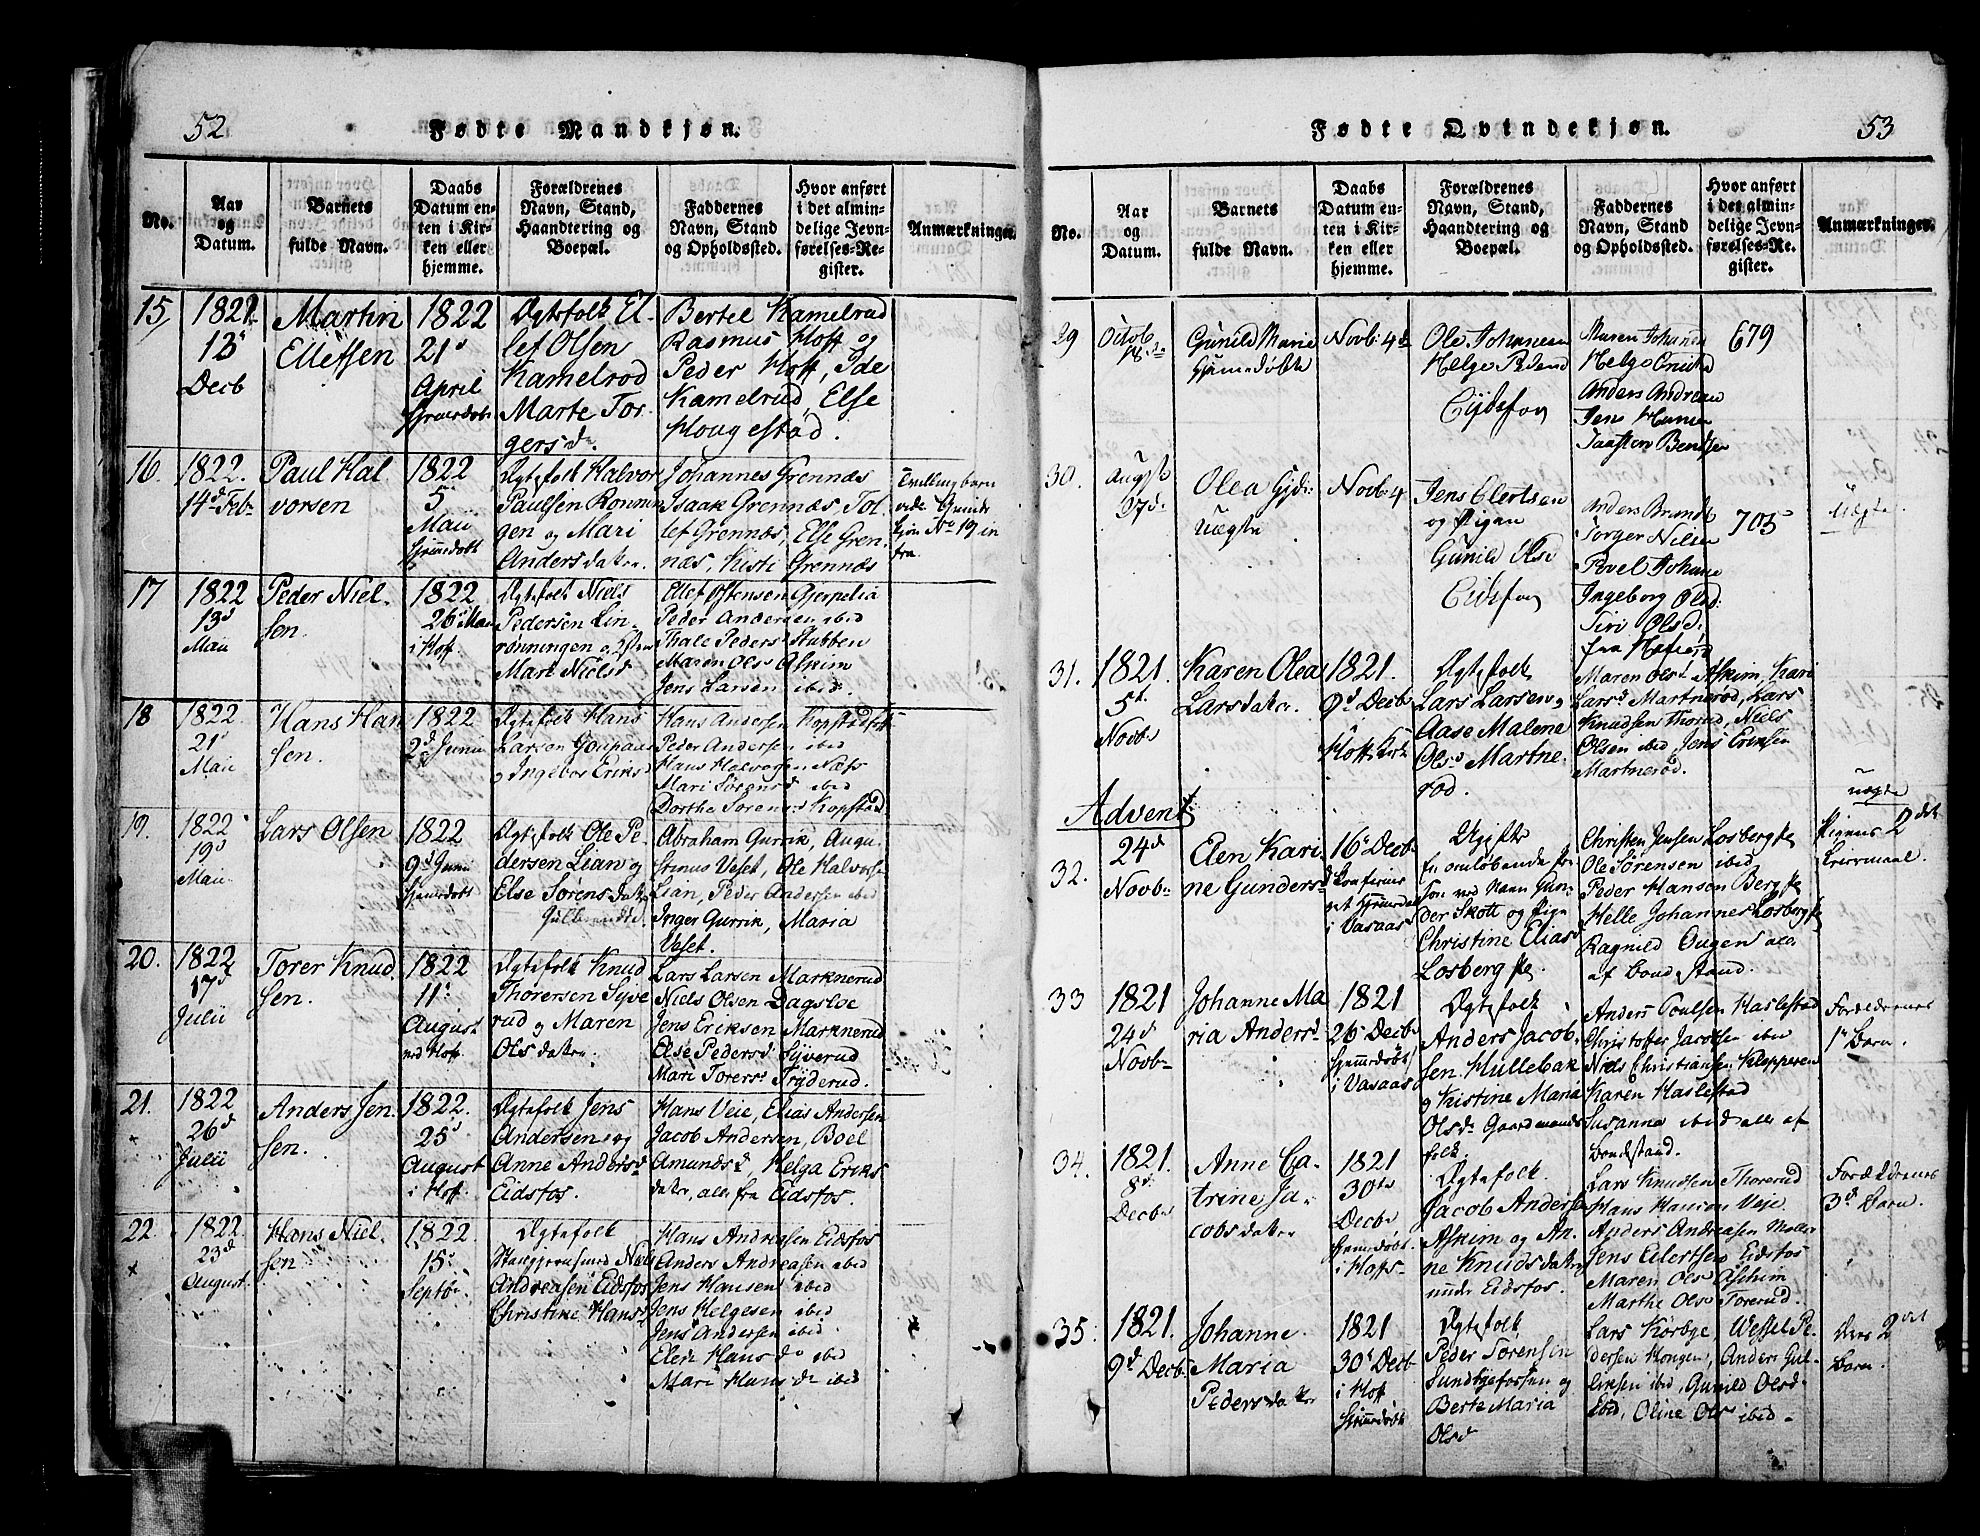 52
Fødte Mandkjøn.
No.
Aar
og
Datum.
Barnets
fulde Navn.
Daabs
Datum en-
ten i Kir-
ken eller
hjemme.
Forældrenes
Navn, Stand,
Haandtering og
Boepæl.
Faddernes
Navn, Stand
og Opholdssted.
Hvor anført
i det almin-
delige Jevn-
førelses-Re-
gister.
Anmærkninger.
15
1821
13
Decb
Martin
Ellefsen
1822
21
April
Ægtefolk El-
lef Olsen
Kamelrod
Marte Tor-
gersd.
Bertel Kamelrud
Rasmus Hoff og
Peder Hoff, Ide
Kamelrud, Else
Hougestad.
16.
1822.
14d Feb
Paul Hal
vorsen
1822
5
Mai
Hjemedøbt
Ægtefolk Halvor
Paulsen Rønnin
gen og Mari
Andersdatter.
Johannes Grennæs
Isaak Grennæs Tol
lef Grennæs, Else Gren-
næs, Kisti Grennæs
Tvillingbarn
No 19 in
fra.
17
1822
13d
Mai
Peder Niel-
sen.
1822
26 Mai
i Hoff
Ægtefolk Niels
Pedersen Lin-
rønningen og
Mari Nielsd
Ellef Ofstensen Gjerpelia
Peder Andersen ibid
Thale Pedersd Stubben
Maren Olsd Askim
Jens Larsen ibid.
18
1822.
21
Mai
Hans Han
sen.
1822
2d Junii
Ægtefolk Hans
Larsen
og Ingebor Eriksd
Hans Andersen Kopstad
Peder Andersen ibid
Hans Halvorsen Næss
Mari Sørensd ibid
Dorthe Sørensd Kopstad
19.
1822
19d
Mai
Lars Olsen
1822
9d Junii
Hjemedøbt
Ægtefolk Ole Pe
dersen Lian og
Else Sørensdatter
Abraham Gurrik, Augu
stinus Veset, Ole Halvors
Lian, Peder Andersen ibid
Inger Gurrik, Maria
Veset.
20.
1822
17d
Julii
Torer Knud
sen.
1822
11
August
ved Hoff
Ægtefolk Knud
Thorersen Syve
rud og Maren
Olsdatter.
Lars Larsen Marknerud
Niels Olsen Dagsloe
Jens Eriksen Marknerud
Else Pedersd Syverud
Mari Torersd Tryderud.
21.
1822
26d
Julii
Anders Jen
sen.
1822.
25d
August
i Hoff
Ægtefolk Jens
Andersen og
Anne Andersd
Eidsfos.
Hans Veie, Elias Andersen
Jacob Andersen, Boel
Amundsd, Helga Eriks
datter, alle fra Eidsfos.
22.
1822.
23d
August.
Hans Niel
sen
1822.
15
Septb
Ægtefolk
Niels
Andreasen Eidsfos
Christine Hansd
Hans Andreasen Eidsfos
Anders Andreasen ibid
Jens Hansen ibid
Jens Helgesen ibid
Jens Andersen ibid
Elen Hansd ibid
Mari Hansd ibid
53
Fødte Qvindekjøn.
No.
Aar
og
Datum.
Barnets
fulde Navn.
Daabs
Datum en-
ten i Kir-
ken eller
hjemme.
Forældrenes
Navn, Stand,
Haandtering og
Boepæl.
Faddernes
Navn, Stand
og Opholdssted.
Hvor anført
i det almin-
delige Jevn-
førelses-Re-
gister.
Anmærkninger.
29
Octob
18
Gunild Marie
Hjemedøbte
Novb: 4
Ole Johansen
Helge Pedersd
Eidsfos
Maren Johansd
Helge
Anders Andreasen
Jens Hansen
Bentsen
679
30.
August
27d.
Olea
uægte
Novb 4
Jens Elertsen
og Pigen
Gunild Olsd
Eidsfos
Anders Brandt
Torger Nilsen
Povel Johans
Ingeborg Olsd
Siri Olsd
fra
705
Uægte.
31.
1821.
5t
Novb
Karen Olea
Larsdatter.
1821.
9d Decb
Hoff Kirk
Ægtefolk
Lars Larsen og
Aase Malene
Olsd Martne-
rød.
Maren Olsd Askim, Kari
Larsd Martnerød, Lars
Knudsen Thorud, Niels
Olsen ibid Jens Eriksen
Martnerød.
Advent
32.
24d
Novb
Elen Kari
ne Gundersd
16 Decb
i Vasaas
Ugifte
En omløbende Per
son ved Navn Gun-
der Skott og Pige
Christine Eliasd
Losberg
Christen Jensen Losberg
Ole Sørensen ibid
Peder Hansen Berg
Helle Johannes Losberg
Ragnild Ougen alle
af Bond Stand.
uægte
Pigens 2det
Leiermaal.
33
1821
24d
Novb
Johanne Ma
ria Andersd
1821
26 Decb
Hjemedøbt
i Vasaas
Ægtefolk
Anders Jacob
sen Hullebak
og Kistine Maria
Olsd Gaardmands
folk.
Anders Poulsen Haslestad
Christoffer Jacobsen ibid
Niels Christiansen Klopperen
Karen Haslestad
Susanna ibid alle af
Bondestand.
Forældrenes
1e Barn.
34.
1821.
8d
Decb
Anne Ca-
trine Ja-
cobsdatter
1821
30te
Decb
Hjemedøbt
i Hoffs
Ægtefolk
Jacob Andersen
Askim og An-
ne Knudsdatter
under Eidsfos.
Lars Knudsen Thorerud
Hans Hansen Veje
Anders Andreasen Møller
Jens Eilertsen Eidsfos
Maren Olsd Aschim
Marthe Olsd Torerud.
Forældrenes
3d Barn.
35.
1821.
9d Decb
Johanne
Maria
Pedersdatter
1821
30 Decb
i Hoff
Hjemedøbt
Ægtefolk
Peder Sørensen
Sundbyefossen og
Berte Maria
Olsd
Lars Kørbye, Wessel Pe
dersen Kongen, Anders Gul-
liksen ibid, Gunild Olsd
Ibid, Oline Olsd ibid.
deres 2det
Barn.